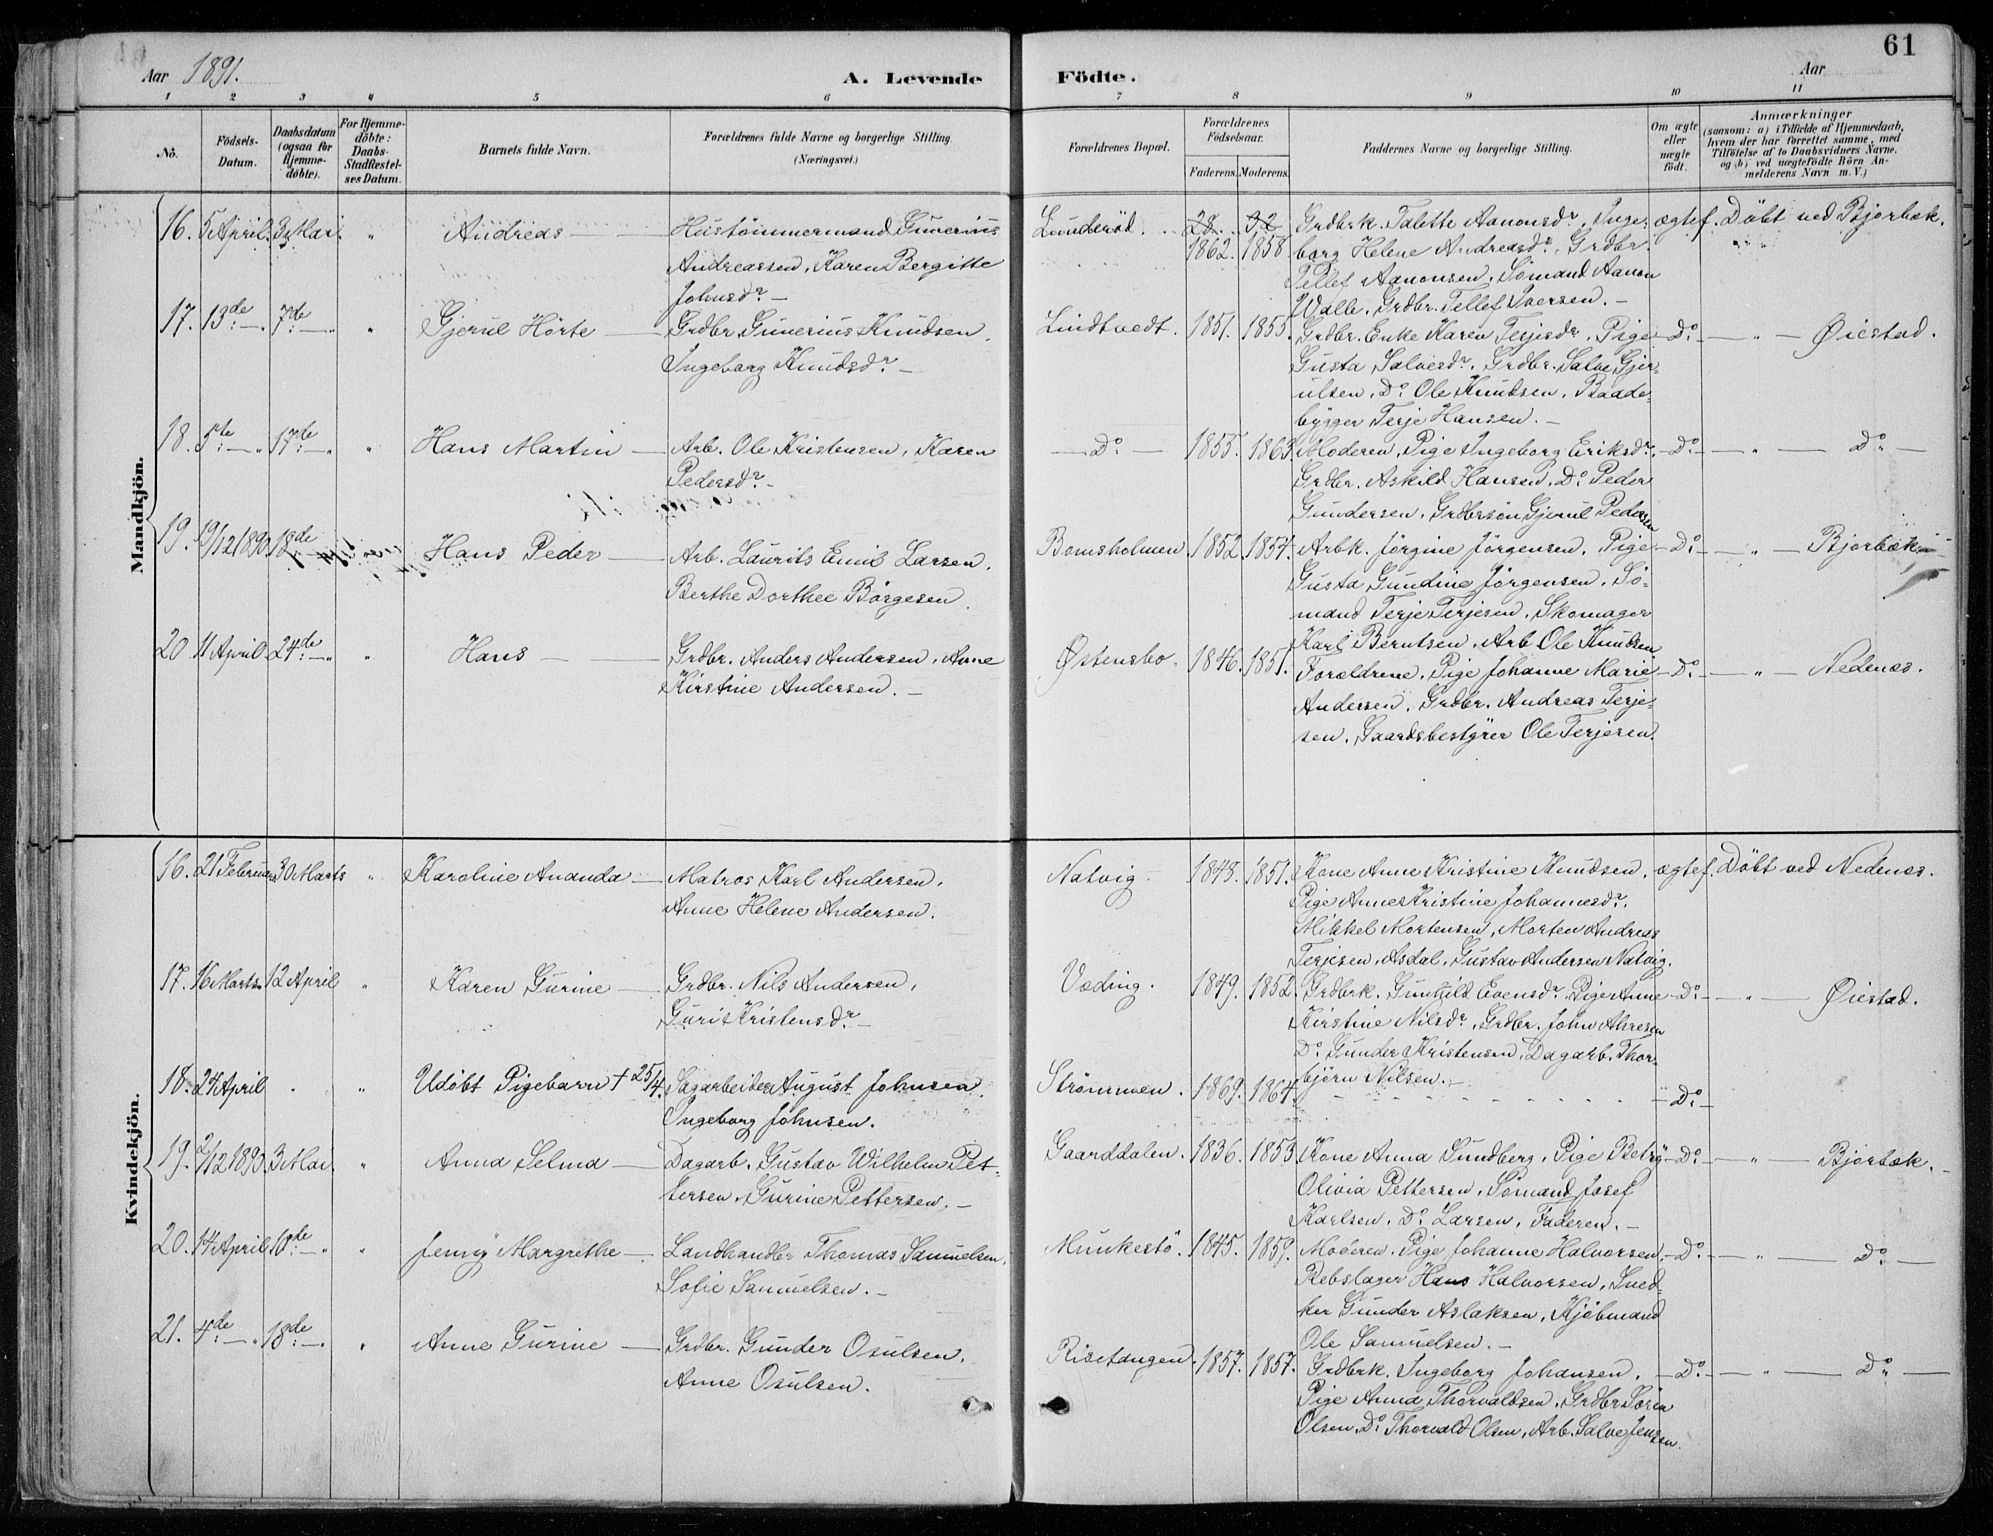 61
Aar 1891.
A. Levende Födte.
Aar
1 2 3 4 5 6 7 8 9 10 11
No.
Födsels-
Datum.
Daabsdatum
(ogsaa for
Hjemme-
döbte).
For Hjemme-
döbte:
Daabs-
Stadfæstel-
ses Datum.
Barnets fulde Navn.
Forældrenes fulde Navne og borgerlige Stilling.
(Næringsvei.)
Forældrenes Bopæl.
Forældrenes
Födselsaar.
Faderens. Moderens.
Faddernes Navne og borgerlige Stilling.
Om ægte
eller
uægte
födt.
Anmærkninger
(saasom: a) i Tilfælde af Hjemmedaab,
hvem der har forrettet samme, med
Tilföielse af to Daabsvidners Navne.
og b) ved uægtefödte Börn An-
melderens Navn m. V.)
Mandkjön.
16. 5 April. 3 Mai. " Andreas — Hustömmermand Gunerius
Andreassen, Karen Bergitte
Johnsdr. —
Lunderöd. 28. 32
1862. 1858.
Grdbrk. Talette Aanonsdr, Inge-
borg Helene Andreasdr. Grdbr.
Tellef Aanonsen, Sömand Aanon
Walle, Grdbr. Tellef Iversen. —
ægtef. Döbt ved Bjorbæk.
17. 13de — 7de — " Gjerul Hörte — Grdbr. Gunerius Knudsen,
Ingeborg Knudsdr. —
Lindtvedt. 1851. 1855.
Grdbr. Enke Karen Terjesdr, Pige
Gusta Salvesdr. Grdbr. Salve Gjer-
ulsen, Do. Ole Knudsen, Baade-
bygger Terje Hansen. —
Do. — " — Øiestad.
18. 5te — " 17de — " Hans Martin — Arb. Ole Kristensen, Karen
Pedersdr. —
Do. — 1855. 1863.
Moderen, Pige Ingeborg Eriksdr.
Grdbr. Askild Hansen, Do. Peder
Gundersen, Grdbrsön Gjerul Pedersen
Do. — " — Do. —
19. 19/12 1890. 18de Hans Peder — Arb. Laurits Emil Larsen,
Berthe Dorthee Börgesen.
Bomsholmen 1852. 1854.
Arbk. Jörgine Jörgensen, Pige
Gusta Gundine Jörgensen, Sö-
mand Terje Terjesen, Skomager
Karl Berntsen, Arb. Ole Knudsen
Do. — " — Bjorbæk.
20. 11 April. 24de — " Hans — Grdbr. Anders Andersen, Anne
Kirstine Andersen. —
Østensbo. 1846. 1851.
Forældrene, Pige Johanne Marie
Andersen, Grdbr. Andreas Terje-
sen, Gaardsbestyrer Ole Terjesen.
Do. — " — Nedenes.
Kvindekjön.
16. 21 Februar 30 Marts " Karoline Ananda — Matros Karl Andersen,
Anne Helene Andersen.
Natvig. 1843. 1851.
Kone Anne Kristine Knudsen,
Pige Anne Kristine Johannesdr.
Mikkel Mortensen, Morten Andreas
Terjesen, Asdal, Gustav Andersen Natvig.
ægtef. Döbt ved Nedenes.
17. 16 Marts 12 April " Karen Gurine — Grdbr. Nils Andersen,
Guri Kristensdr. —
Væding. 1849. 1852.
Grdbrk. Gunhild Evensdr. Pige Anne
Kirstine Nilsdr. Grdbr. John
Do. Gunder Kristensen, Dagarb. Thor-
björn Nilsen. —
Do. — " — Øiestad.
18. 24 April " Udöbt Pigebarn † 25/4. Sagarbeider August Johnsen,
Ingeborg Johnsen.
Strömmen. 1869. 1864.
Do. —
19. 2/12 1890. 3 Mai " Anna Selma — Dagarb. Gustav Wilhelm Pet-
tersen, Gurine Pettersen. —
Gaarddalen. 1836. 1853.
Kone Anna Sundberg, Pige Betzy
Olivia Pettersen, Sömand Josef
Karlsen, Do. Larsen, Faderen. —
Do. — " — Bjorbæk. —
20. 14 April 10de — " Jenny Margrethe — Landhandlr Thomas Samuelsen,
Sofie Samuelsen. —
Munkestö. 1845. 1859.
Moderen, Pige Johanne Halvorsen,
Rebslager Hans Halvorsen, Sned-
ker Gunder Aslaksen, Kjöbmand
Ole Samuelsen. —
Do. — " — Do. —
21. 4de — " 18de — " Anne Gurine — Grdbr. Gunder Osulsen,
Anne Osulsen.
Risetangen. 1857. 1857.
Grdbrk. Ingeborg Johansen,
Pige Anna Thorvaldsen, Grdbr Sören
Olsen, Do. Thorvald Olsen, Arb. Salve Jensen.
Do. — " — Do. —